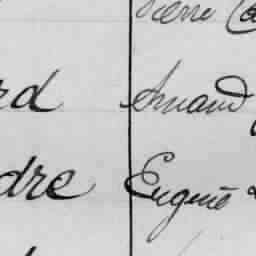 Pierre
rd Amand
dre Eugène